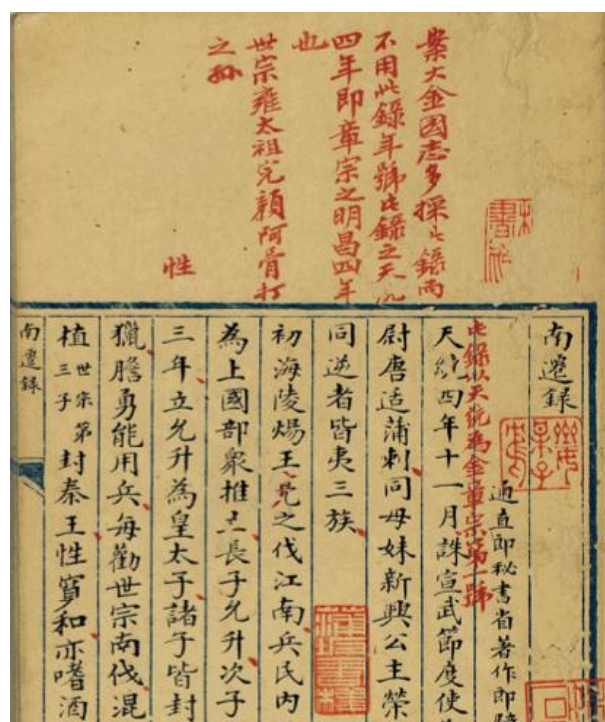 案大金國志多採此錄而
不用此錄年號此錄之天統
四年即章宗之明昌四年
也
世宗雍太祖完顏阿骨打
之孫
性
南遷錄
通直郎秘書省著作郎
此錄以天統為金章宗第一號
天統四年十一月誅宣武節度使
尉唐适蒲剌同母妹新興公主榮
同逆者皆夷三族
初海陵煬王亮之伐江南兵民内
為上國部衆推立長子允升次子
三年立允升為皇太子諸子皆封
獵膽勇能用兵每勸世宗南伐混
植世宗第三子封秦王性寬和亦嗜酒
南遷錄